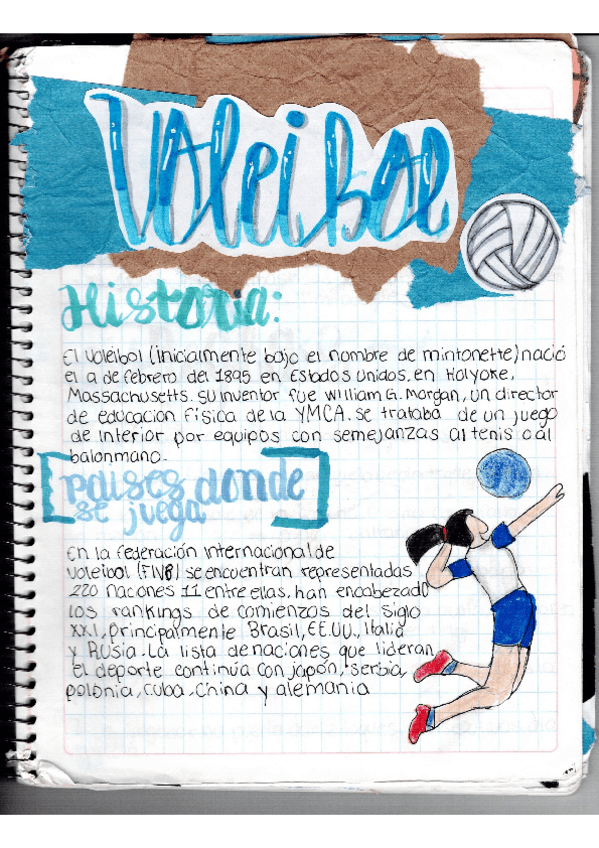 Voleibol
Historia:
El voleibol (inicialmente bajo el nombre de mintonette) nació
el 9 de febrero del 1895 en Estados Unidos, en Holyoke,
Massachusetts. su inventor fue William G. Morgan, un director
de educación física de la YMCA. se trataba de un juego
de interior por equipos con semejanzas al tenis o al
balonmano.
paises donde
se juega
En la federación internacional de
voleibol (FIVB) se encuentran representadas
220 naciones 11 entre ellas, han encabezado
los rankings de comienzos del siglo
XXI, principalmente Brasil, EE.UU., Italia
y Rusia. La lista de naciones que lideran
el deporte continúa con japón, serbia,
polonia, cuba, china y alemania